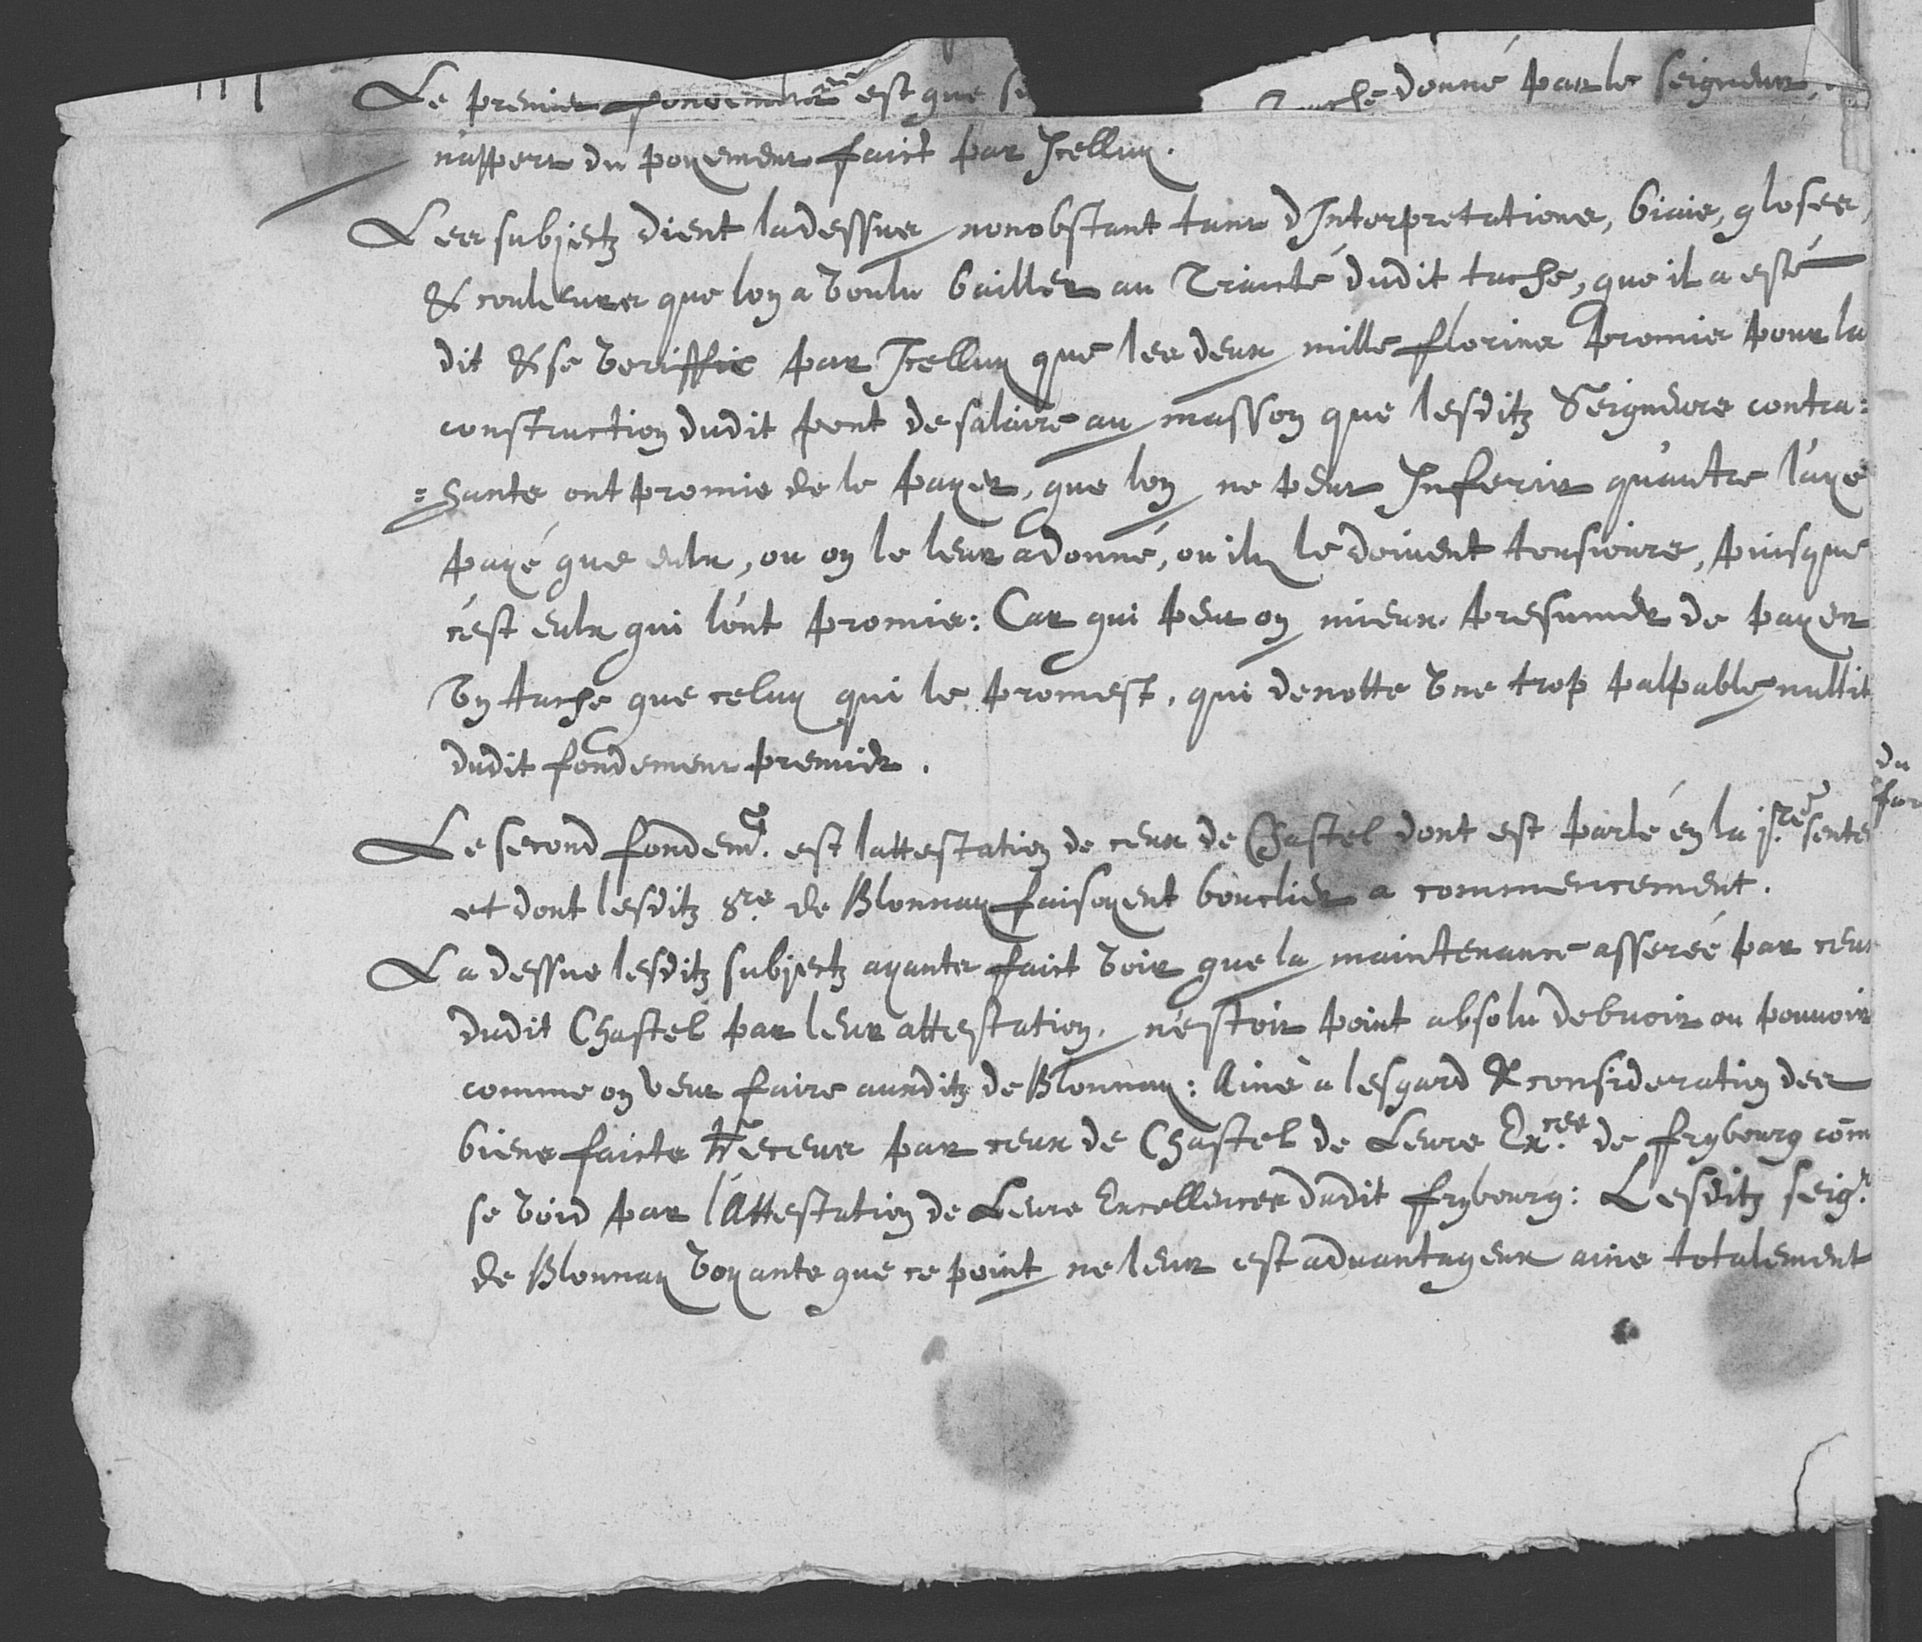 Le premier fondement est que se tache donné par le seigneur
n'appert du poyement faict par Icelluy.
Les subjectz dient ladessus nonobstant tant d'Interpretations, biais, gloses,
& couleures que lon a voulu bailler au Traicté dudit tache, que il a esté
dit & se veriffie par Icelluy que les deux mille florins promis pour la
construction dudit pont de salaire au masson que lesditz Seigneurs contra=
=hants ont promis de le payer, que lon ne peut Inferir qu'autre l'aye
payé que eulx, ou on le leur a donné, ou ilz le doivent tousiours, puisque
c'est eulx qui l'ont promis: Car qui peut on mieux presumer de payer
vn tache que celuy qui le promest, qui denotte vne trop palpable nullit
dudit fondement premier.
Le second fondemt. est lattestation de ceux de Chastel dont est parlé en la sente
et dont lesditz Srs de Blonnay faisoyent bouclier a commencement.
La dessus lesditz subjectz ayants faict voir que la maintenance asserée par ceux
dudit Chastel par leur attestation, n'estoit point absolu debvoir ou pouvoir
comme on veut faire auxditz de Blonnay: Ains a lesgard & consideration des
biens faicts receus par ceux de Chastel de Leurs Exces de frybourg com
se void par l'Attestation de Leurs Excellences dudit frybourg: Lesditz seigrs
de Blonnay voyants que ce point ne leur est advantageux ains totalement
du